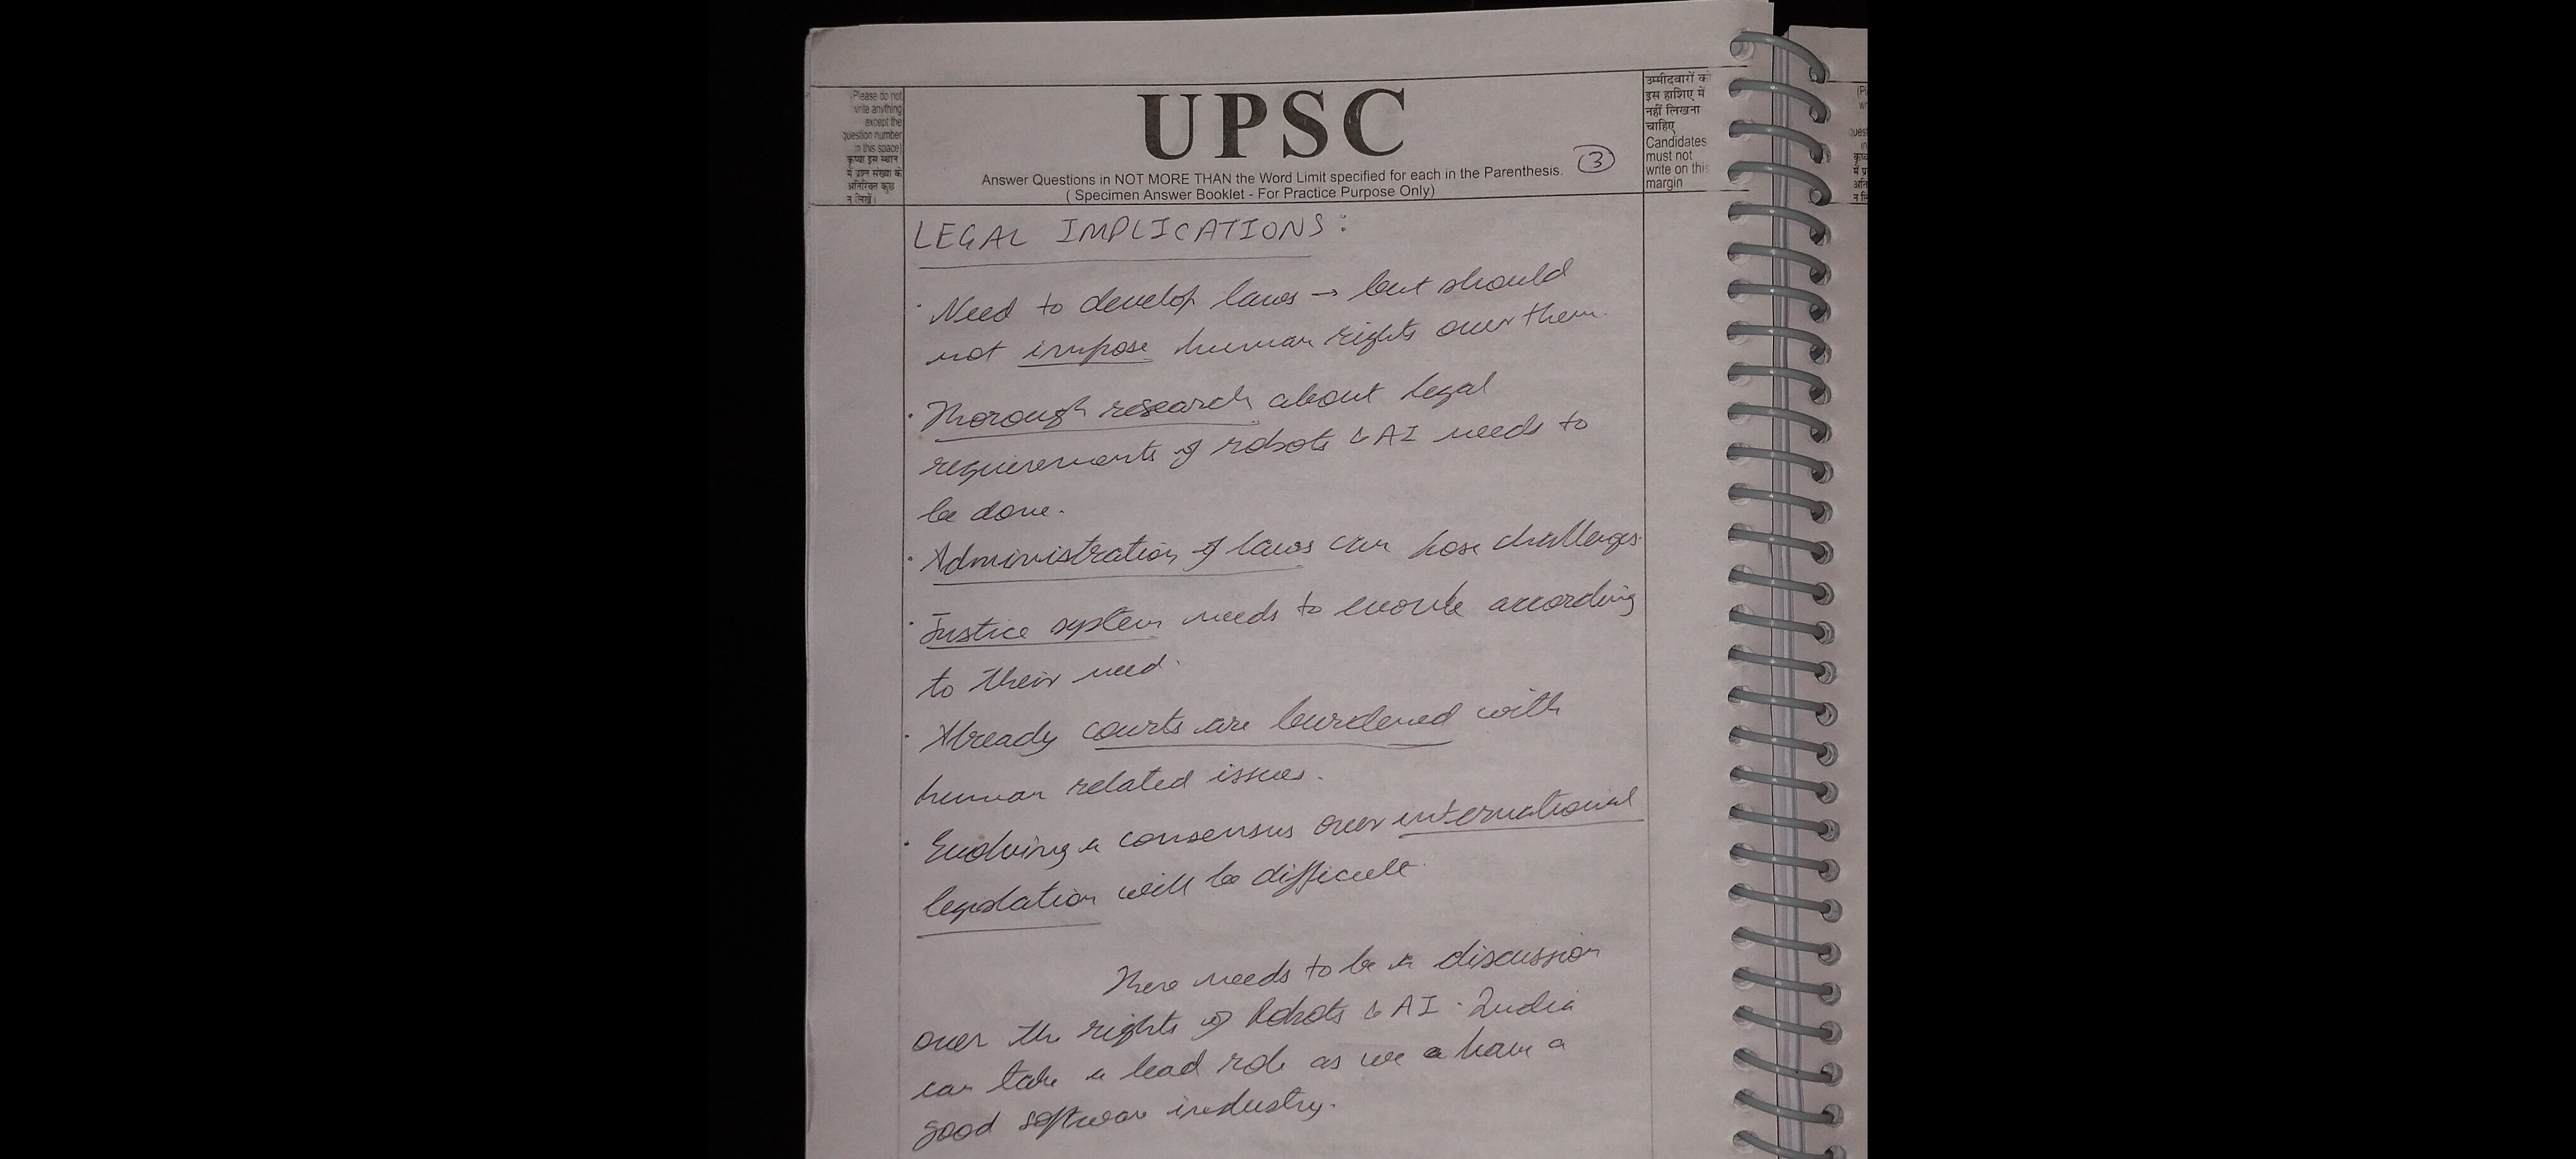 (Please do not
write anything
except the
question number
in this space)
कृपया इस स्थान
में प्रश्न संख्या के
अतिरिक्त कुछ
न लिखें।
UPSC
Answer Questions in NOT MORE THAN the Word Limit specified for each in the Parenthesis.
( Specimen Answer Booklet - For Practice Purpose Only)
3
उम्मीदवारों को
इस हाशिए में
नहीं लिखना
चाहिए
Candidates
must not
write on this
margin
LEGAL IMPLICATIONS:
· Need to develop laws → but should
not impose human rights over them.
· Thorough research about legal
requirements of robots & AI needs to
be done.
· Administration of laws can pose challenges.
· Justice system needs to evolve according
to their need.
· Already courts are burdened with
human related issues.
· Evolving a consensus over international
legislation will be difficult.
There needs to be a discussion
over the rights of Robots & AI. India
can take a lead role as we have a
good software industry.